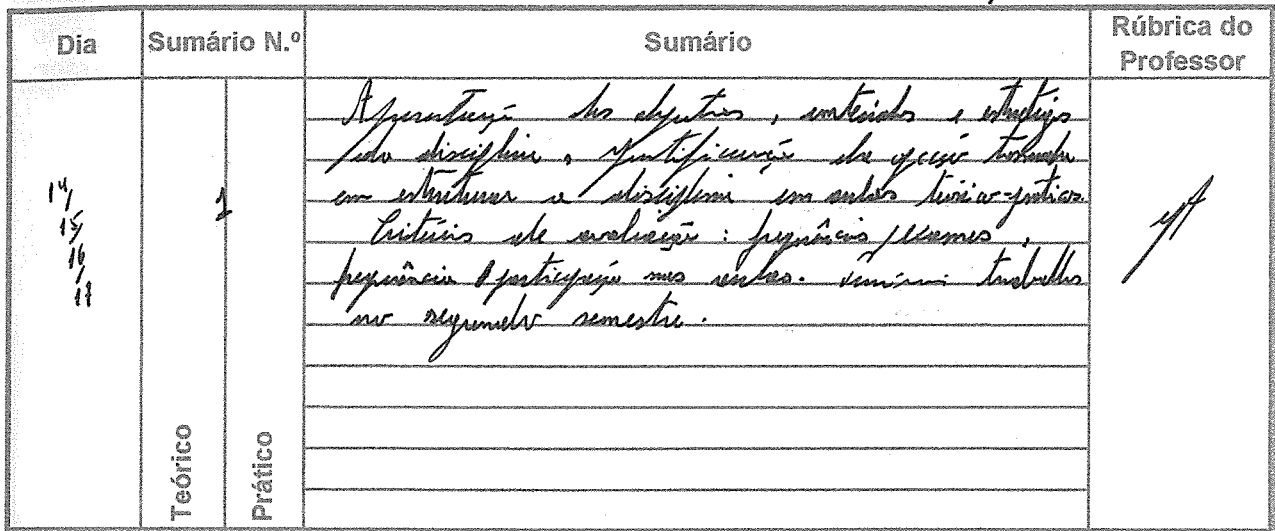 Dia Sumário N.º Sumário Rúbrica do Professor
14/
15/
16/
17
1
Apresentação dos objectivos, conteúdos e estratégias
da disciplina, justificação da opção tomada
em estruturar a disciplina em aulas teórico-práticas.
Critérios de avaliação: frequências / exames,
frequência e participação nas aulas. trabalho
no segundo semestre.
Teórico
Prático